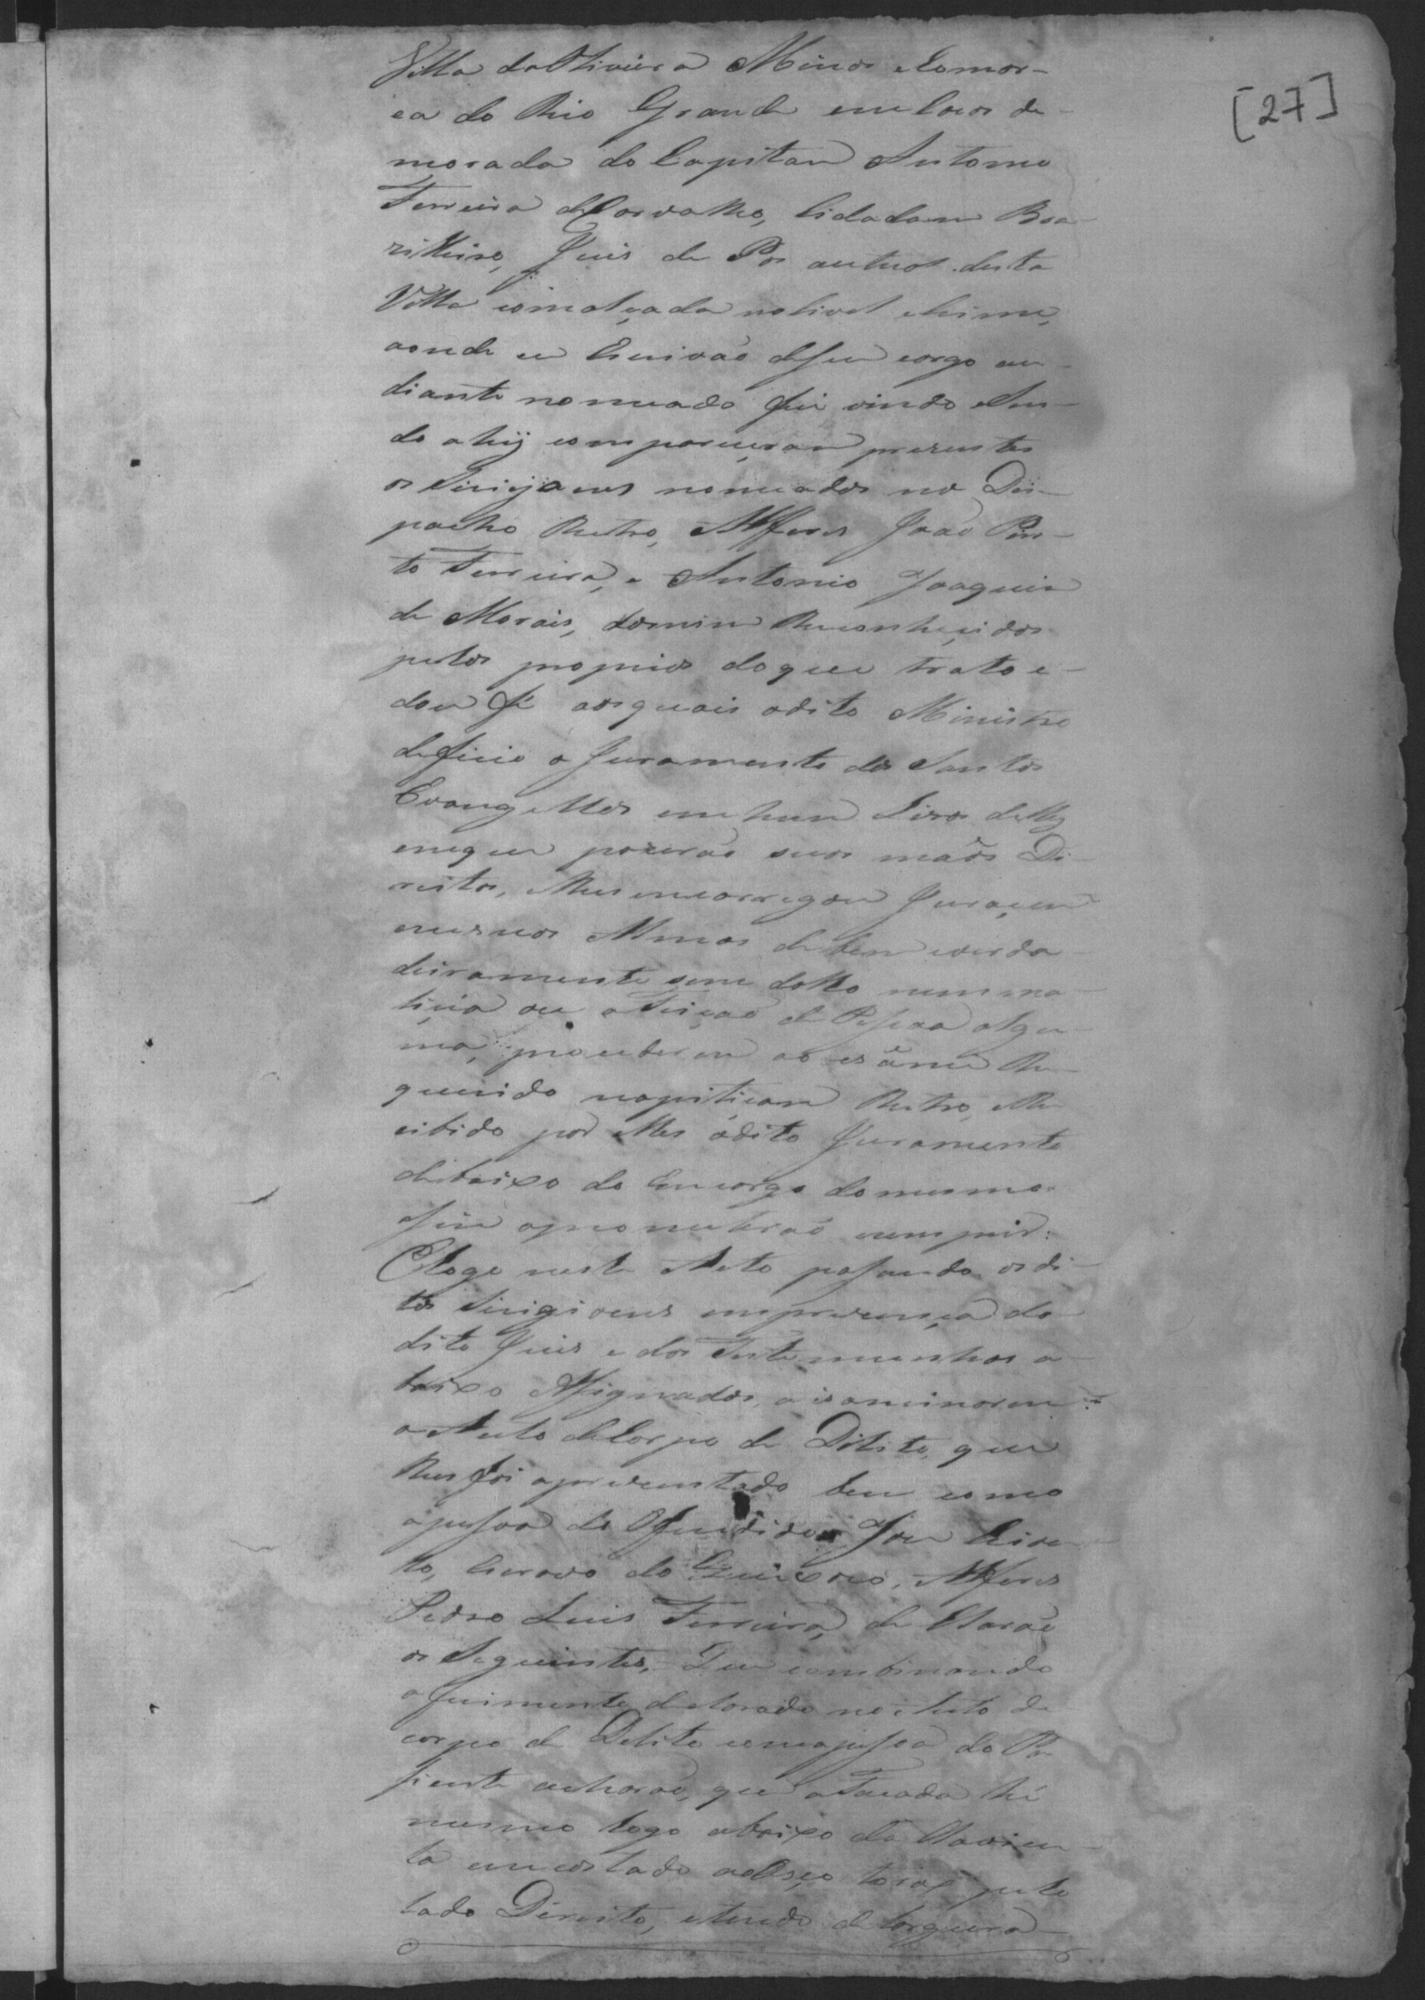 [27]
Villa da Oliveira Minas e Comar-
ca do Rio Grande em Casas de
morada do Capitam Antonio
Ferreira de Carvalho, Cidadam Bra-
zilleiro, Juis de Pas actual desta
Villa comalçada no Civel e Crime,
aonde eu Escrivão de seu cargo au
diante nomeado fui vindo e sen-
do ahij compareceram prezentes
os Sirujoens nomeados no Dis-
pacho Retro, Alferes João Pin-
to Ferreira, e Antonio Joaquim
de Morais, Reconhecidos
pellos proprios do que trato e
dou fé aos quais o dito Ministro
deferio o Juramento dos Santos
Evangelhos em hum Livro delles
emque pozerão suas maõs Di-
reitas, e lhes encarregou Juraçem
em suas Almas de bem e verda
deiramente sem dollo nem ma-
licia ou afeição de Pessoa algu-
ma, procederem ao exáme Re-
querido napitiçam Retro, e Re
cibido por elles odito Juramento
debaixo do Encargo do mesmo
assim aprometerão cumprir:
E logo neste Acto passando os di-
tos Sirigioens emprezença do
dito Juis e das Testemunhas a-
baixo Assignadas, aizaminarem
o Auto de Corpo de Delito, que
lhes foi aprezentado bem como
apessoa do Ofendido Jose Criou-
lo, Escravo do Queixozo, Alferes
Pedro Luis Ferreira, declararão
os Seguintes, Que combinando
o ferimento declarado no Auto de
corpo de Delito comapessoa do Pa-
siente acharão, que a Facada hé
mesmo logo abaixo da Clavicu-
la encostado aoOsço torax pello
lado Direito, e tendo de largura